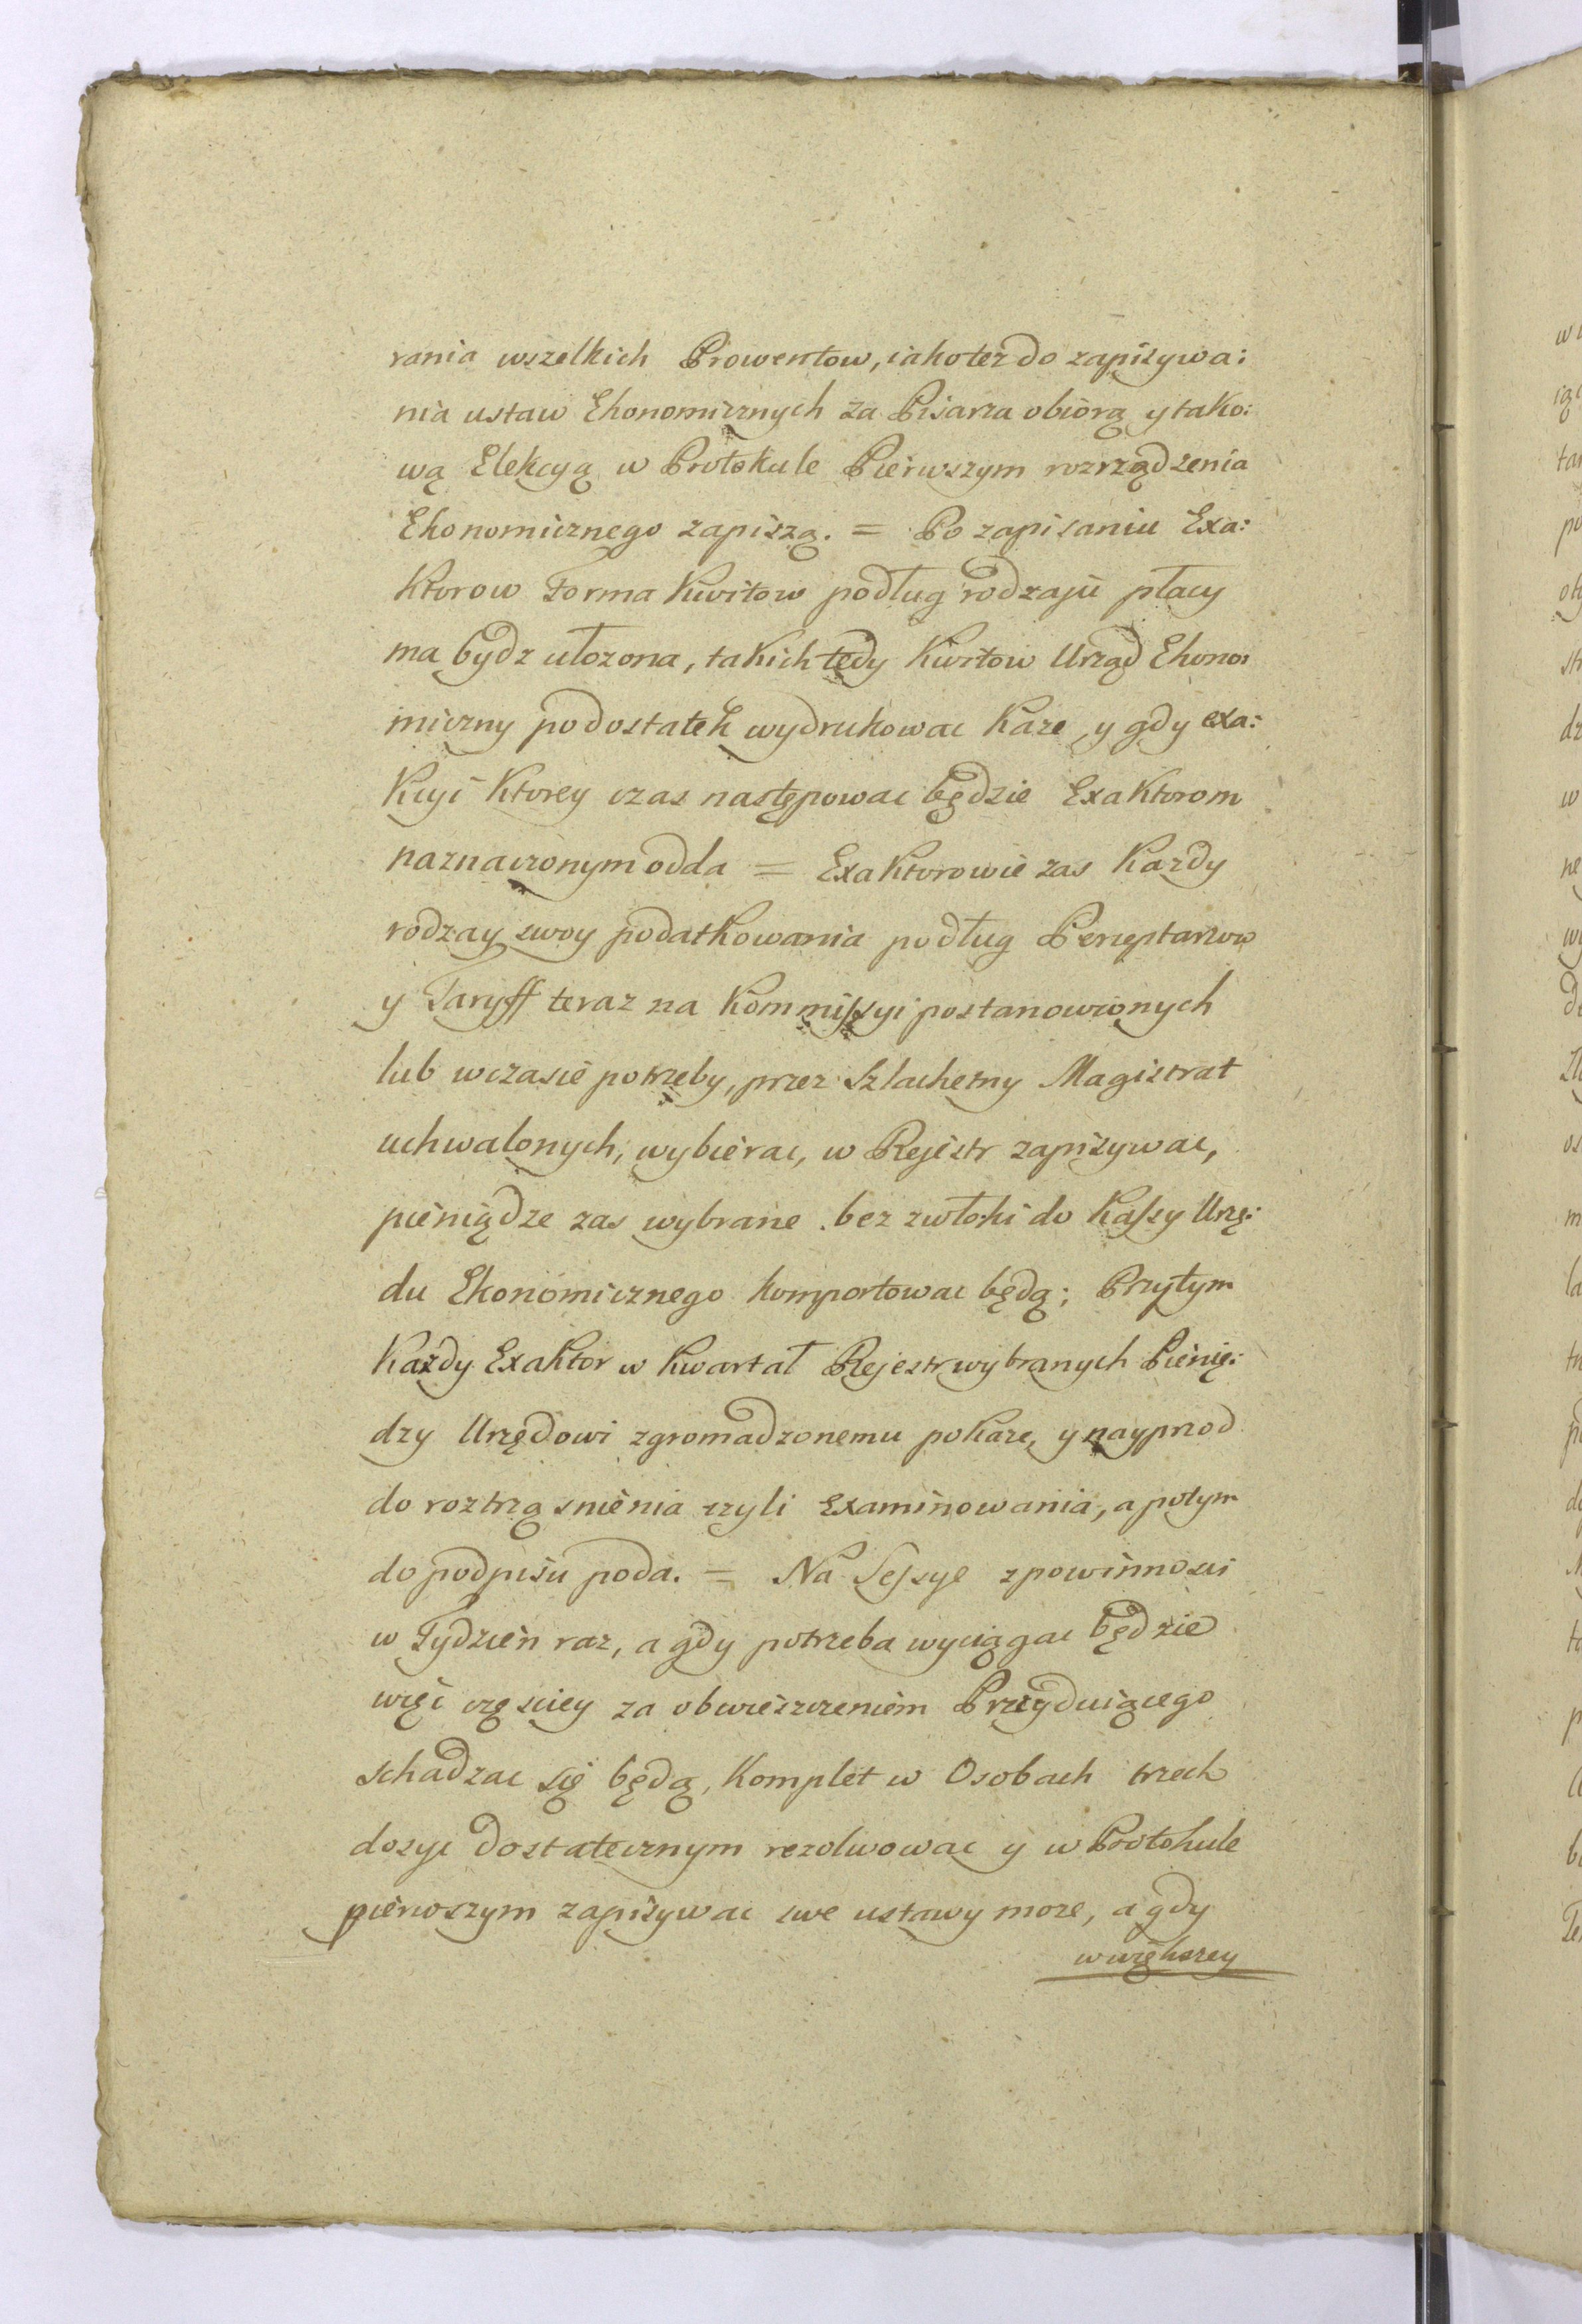 rania wszelkich Prowentow, iako też do zapisywa:
nia ustaw Ekonomicznych za Pisarza obiorą y tako:
wą Elekcyą w Protokule Pierwszym rozrządzenia
Ekonomicznego zapiszą. = Po zapisaniu Exa:
ktorow Forma Kwitow podług rodzaju płacy
ma bydz ułozona, takich tedy Kwitow Urząd Ekono:
miczny podostatek wydrukowac każe, y gdy exa:
kcyi Ktorey czas następowac będzie Exaktorom
naznaczonym odda = Exaktorowie zas Kazdy
rodzay swoy podatkowania podług Perceptarzow
y Taryff teraz na Kommissyi postanowionych
lub w czasie potrzeby, przez Szlachetny Magistrat
uchwalonych, wybierac, w Rejestr zapisywac,
pieniądze zas wybrane bez zwłoki do Kassy Urzę:
du Ekonomicznego komportowac będą; Przytym
Kazdy Exaktor w Kwartał Rejestr wybranych Pienię:
dzy Urzędowi zgromadzonemu pokaże, y nayprzod
do roztrząsnienia czyli Examinowania, a potym
do podpisu poda. = Na Sessye z powinnosci
w Tydzień raz, a gdy potrzeba wyciągac będzie
więc częsciey za obwieszczeniem Prezyduiącego
schadzac się będą, Komplet w Osobach trzech
dosyc dostatecznym rezolwowac y w Protokule
pierwszym zapisywac swe ustawy może, a gdy
w większey